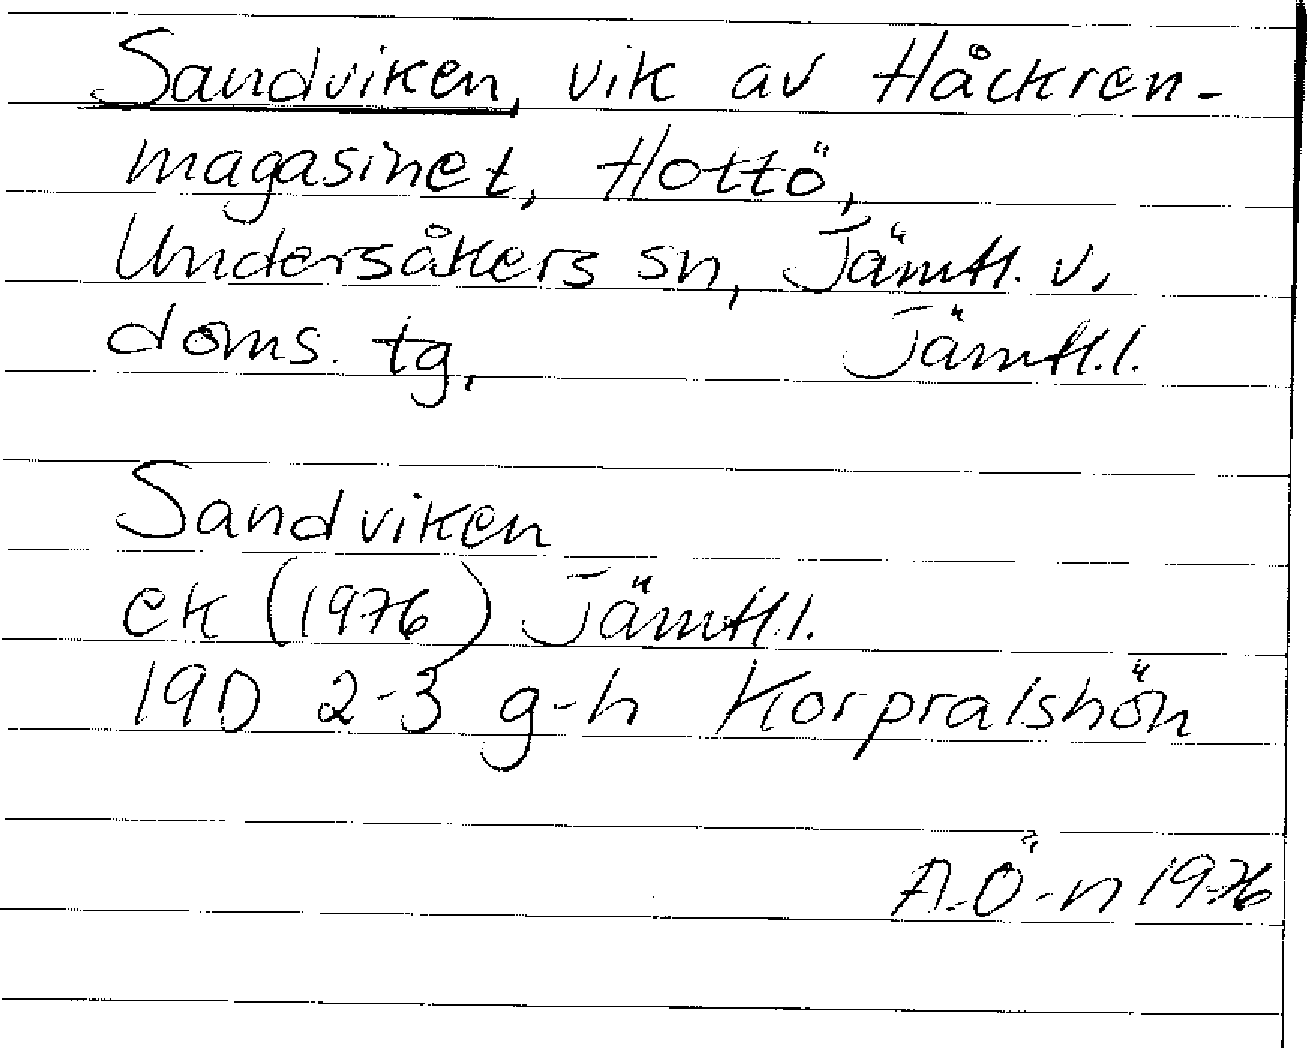 Sandviken, vik av Håckren-
magasinet, Hottö,
Undersåkers sn, Jämtl. v.
doms. tg, Jämtl.l.
Sandviken
ek (1976) Jämtl.l.
19D 2-3 g-h Korpralshön
A.Ö-n 1976